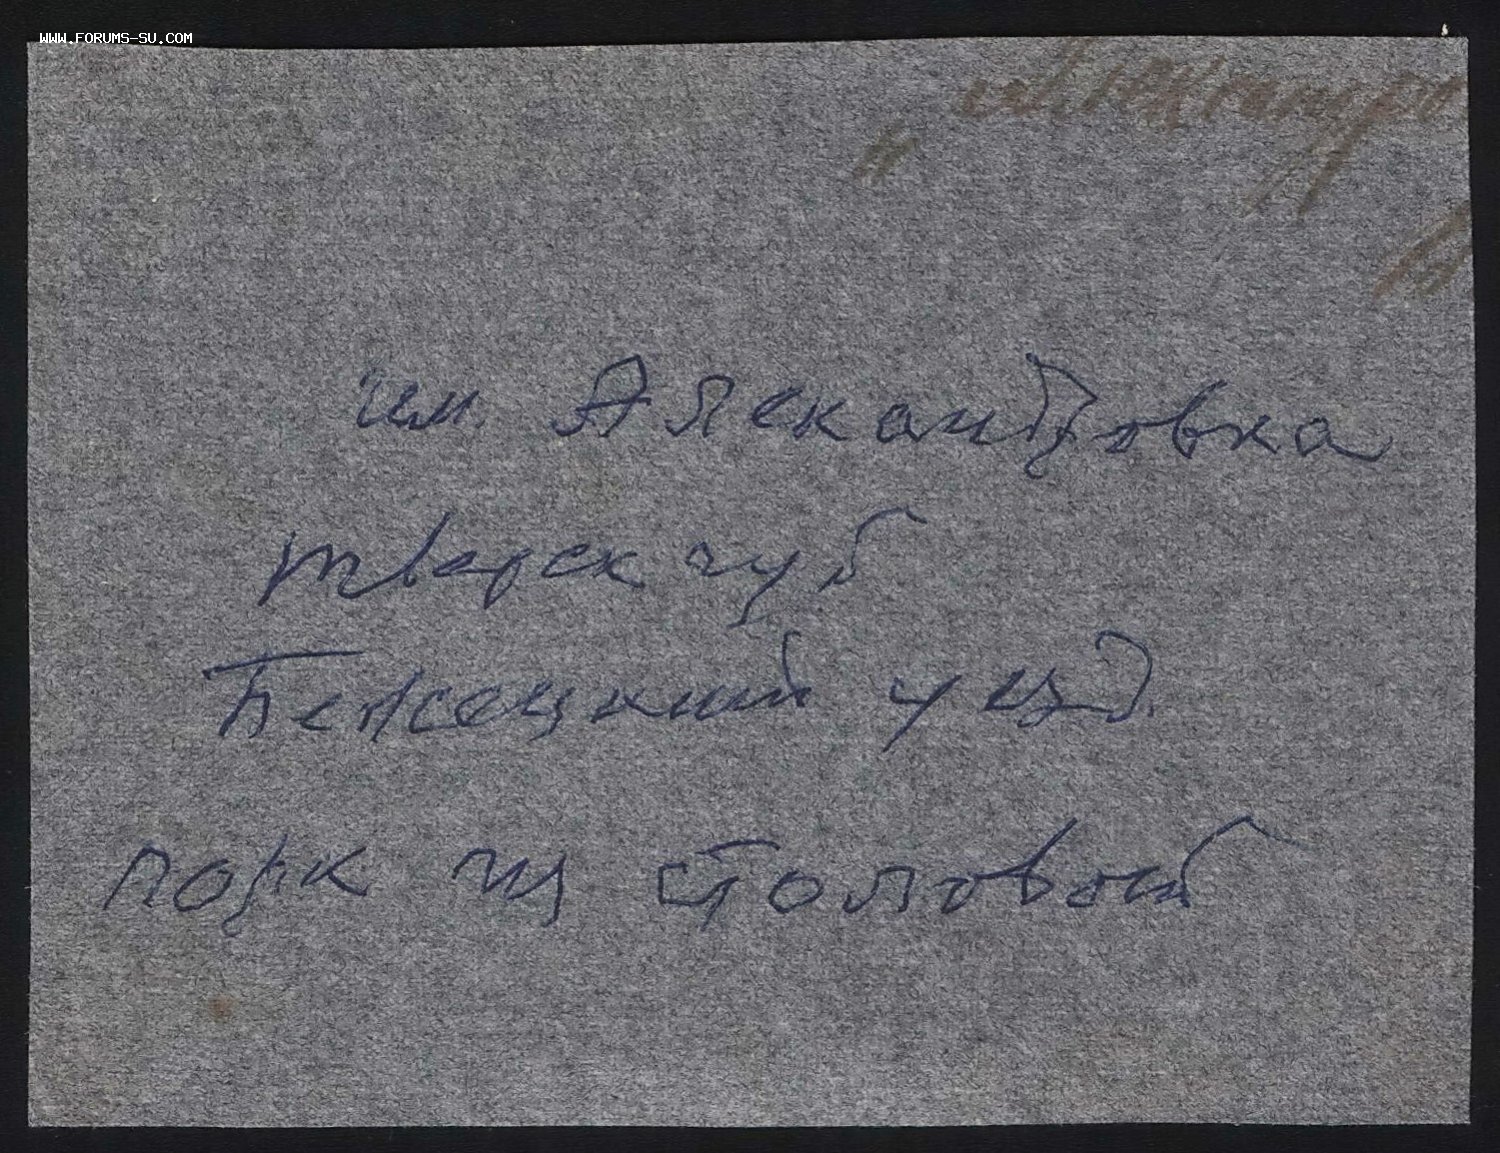 WWW.FORUMS-SU.COM
им. Александровка
тверск губ
Бежецкий уезд.
парк из столовой